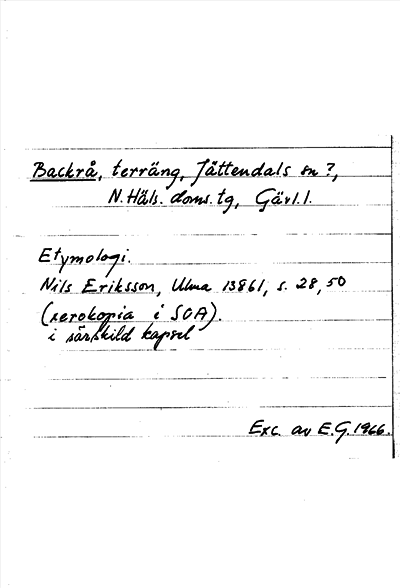 Backrå, terräng, Jättendals sn ?,
N. Häls. doms. tg, Gävl. l.
Etymologi.
Nils Eriksson, Ulma 13861, s. 28, 50
(xerokopia i SOA).
i särskild kapsel
Exc. av E.G. 1966.